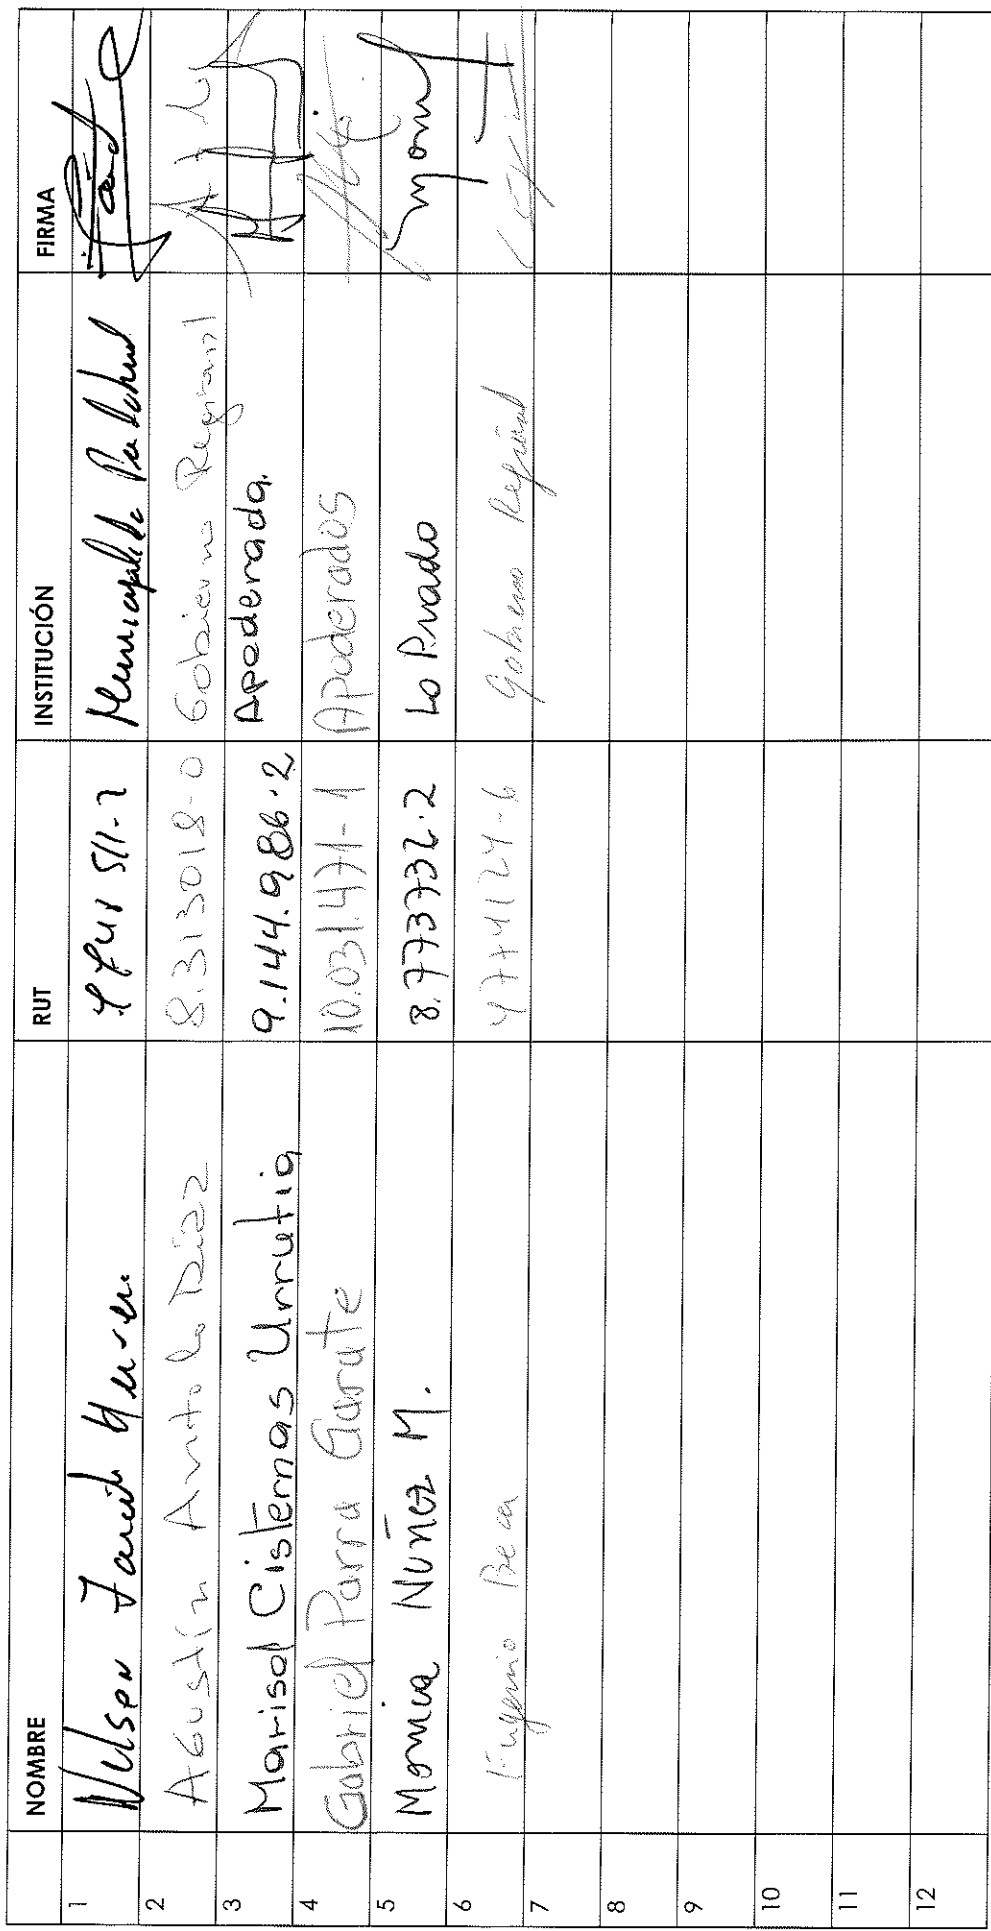 NOMBRE RUT INSTITUCIÓN FIRMA
1 Nelson 511-7
2 AGUSTÍN Díaz 8.313018-0 Gobierno Regional
3 Marisol Cisternas Urrutia 9.144.986-2 Apoderada.
4 Gabriel Parra Garate 10.031.471-1 Apoderados
5 Monica Nuñez M. 8.773732-2 Lo Prado
6 Eugenio Beca 4774124-6 Gobierno Regional
7
8
9
10
11
12